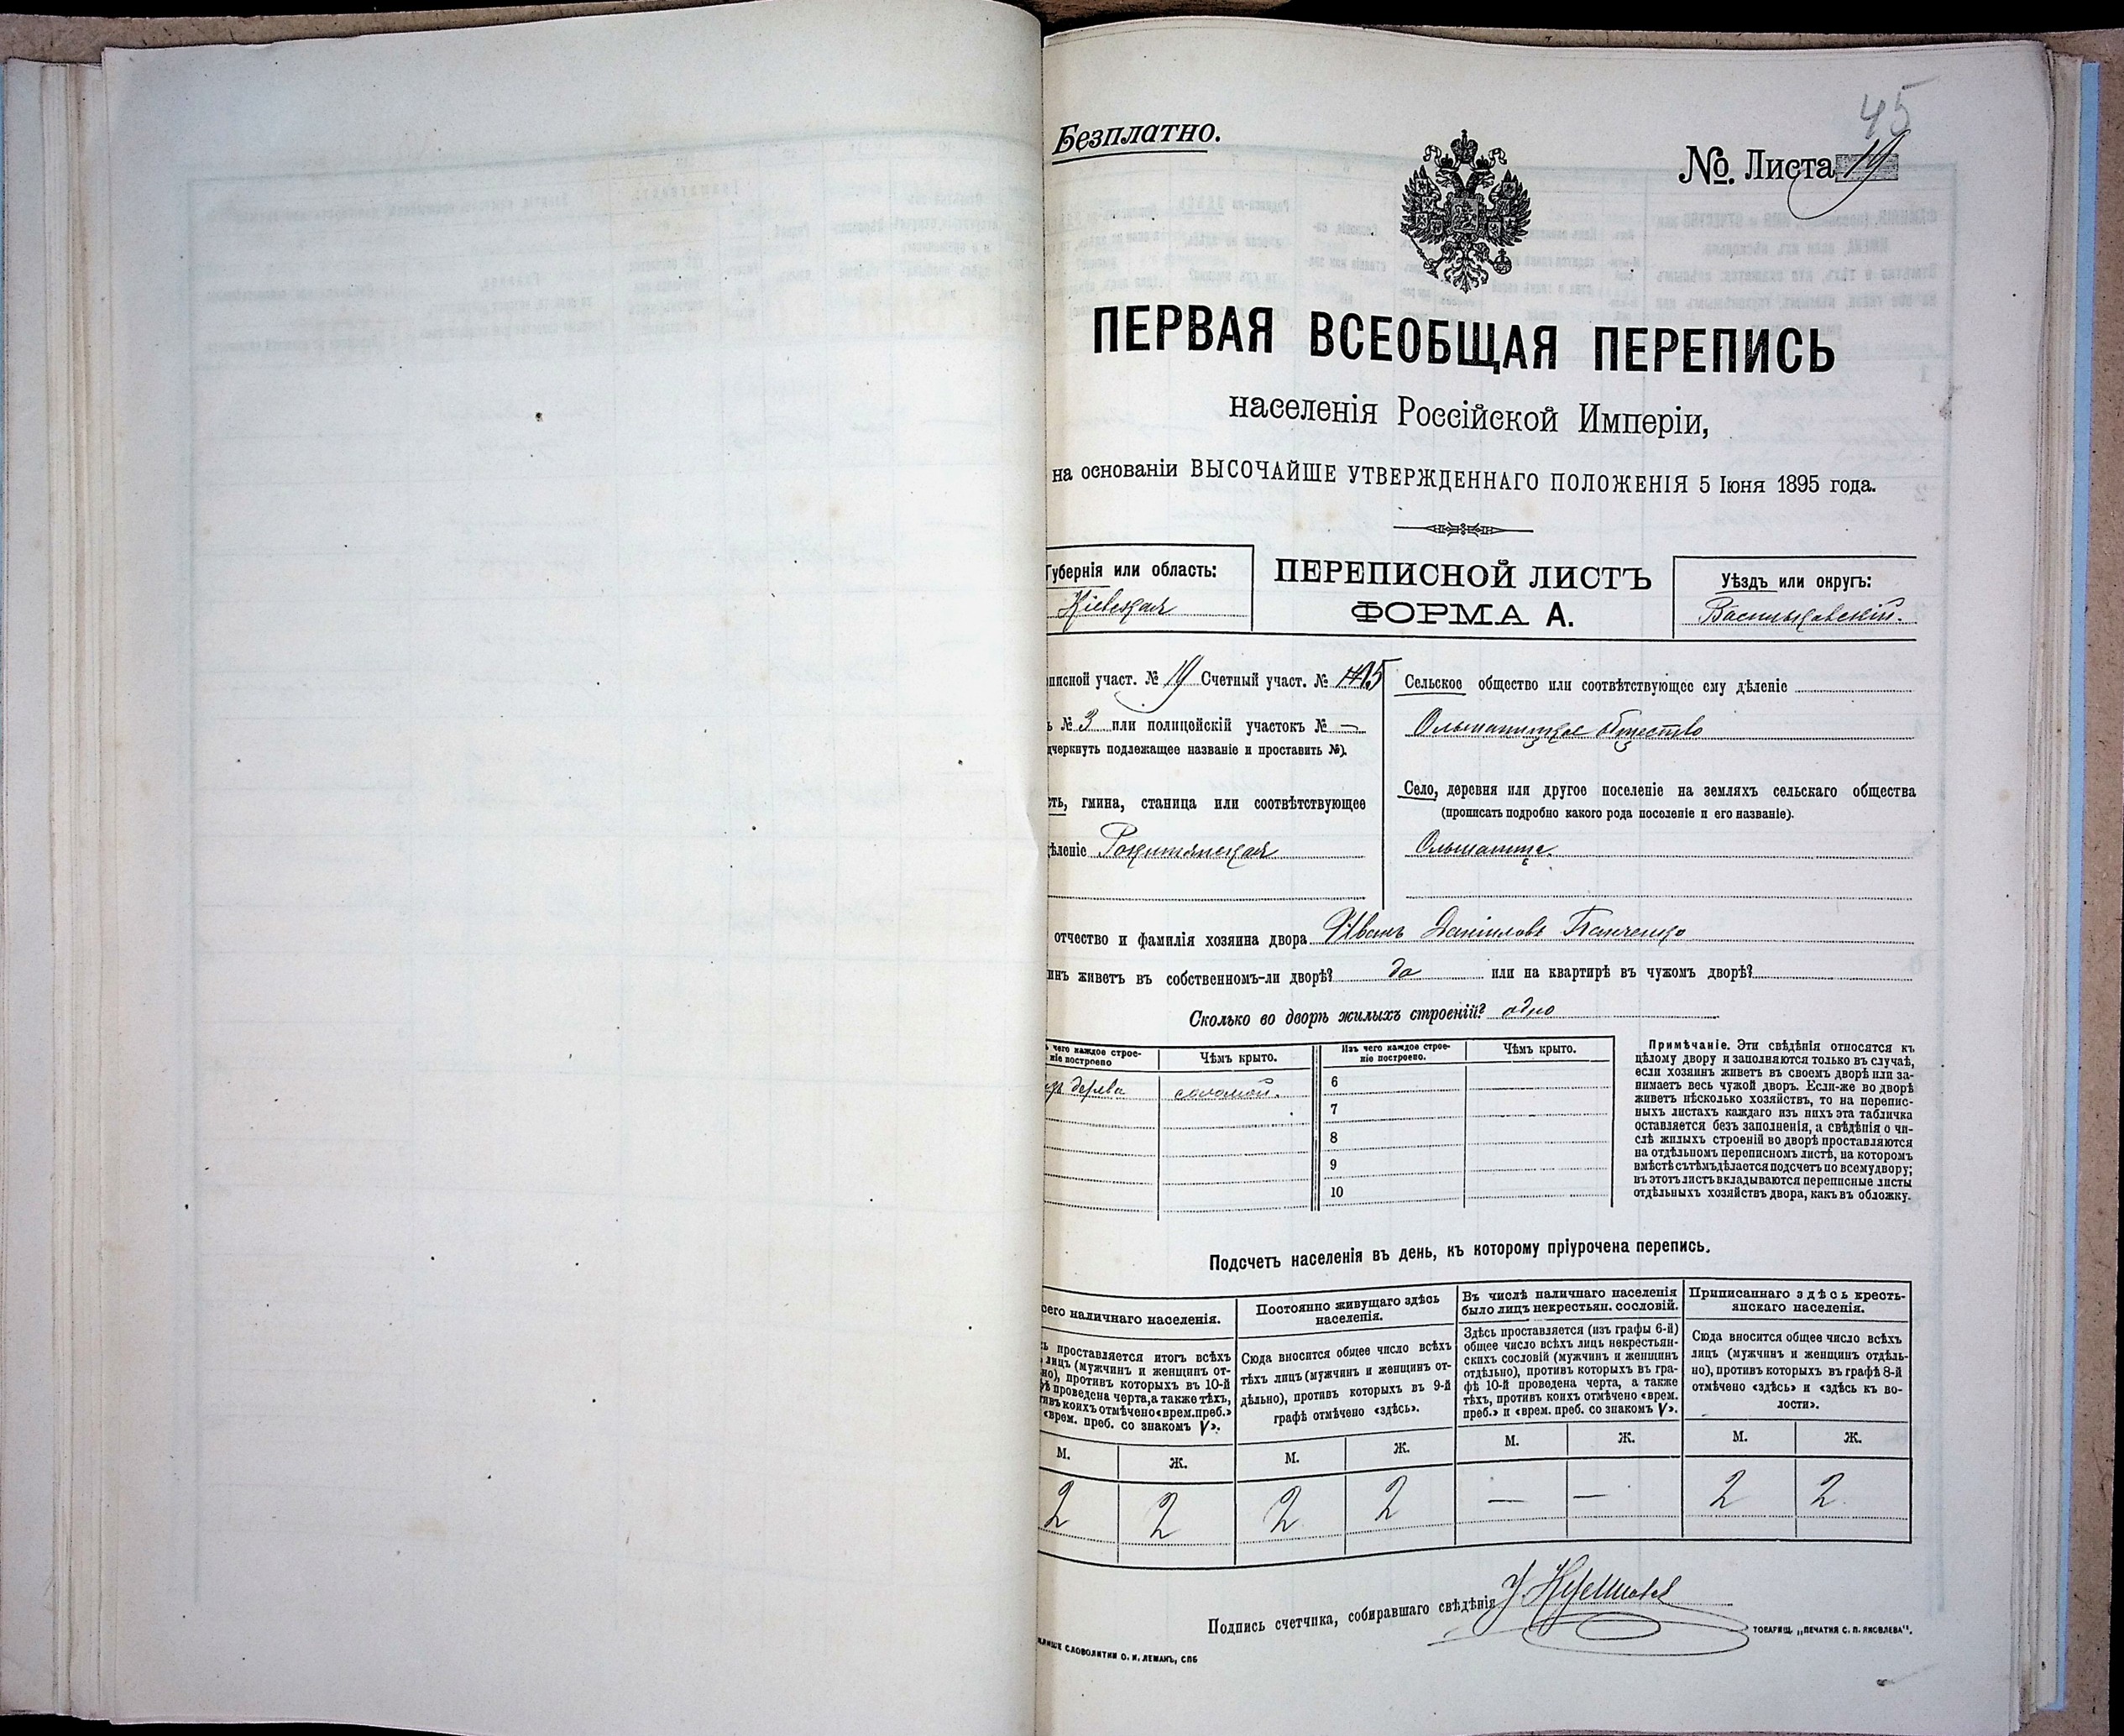 45
Безплатно.
№. Листа 19
ПЕРВАЯ ВСЕОБЩАЯ ПЕРЕПИСЬ
населенія Россійской Имперіи,
на основаніи ВЫСОЧАЙШЕ УТВЕРЖДЕННАГО ПОЛОЖЕНІЯ 5 Іюня 1895 года.
Губернія или область:
Кіевская
ПЕРЕПИСНОЙ ЛИСТЪ
ФОРМА А.
Уѣздъ или округъ:
Васильковскій.
писной участ. № 19 Счетный участ. №
ь № 3 или полицейскій участокъ № —
дчеркнуть подлежащее названіе и проставить №).
сть, гмина, станица или соотвѣтствующее
дѣленіе Рокитянская
Сельское общество или соотвѣтствующее ему дѣленіе
Ольшаницкое общество
Село, деревня или другое поселеніе на земляхъ сельскаго общества
(прописать подробно какого рода поселеніе и его названіе).
Ольшаница.
отчество и фамилія хозяина двора Иванъ Даніиловъ Панченко
инъ живетъ въ собственномъ-ли дворѣ? да или на квартирѣ въ чужомъ дворѣ?
Сколько во дворѣ жилыхъ строеній? одно
ъ чего каждое строе-
ніе построено
Чѣмъ крыто.
Изъ чего каждое строе-
ніе построено.
Чѣмъ крыто.
изъ дерева соломой.
6
7
8
9
10
Примѣчаніе. Эти свѣдѣнія относятся къ
цѣлому двору и заполняются только въ случаѣ,
если хозяинъ живетъ въ своемъ дворѣ или за-
нимаетъ весь чужой дворъ. Если-же во дворѣ
живетъ нѣсколько хозяйствъ, то на перепис-
ныхъ листахъ каждаго изъ нихъ эта табличка
оставляется безъ заполненія, а свѣдѣнія о чи-
слѣ жилыхъ строеній во дворѣ проставляются
на отдѣльномъ переписномъ листѣ, на которомъ
вмѣстѣ съ тѣмъ дѣлается подсчетъ по всему двору;
въ этотъ листъ вкладываются переписные листы
отдѣльныхъ хозяйствъ двора, какъ въ обложку.
Подсчетъ населенія въ день, къ которому пріурочена перепись.
сего наличнаго населенія.
ь проставляется итогъ всѣхъ
лицъ (мужчинъ и женщинъ от-
но), противъ которыхъ въ 10-й
фѣ проведена черта, а также тѣхъ,
тивъ коихъ отмѣчено «врем. преб.»
«врем. преб. со знакомъ V».
Постоянно живущаго здѣсь
населенія.
Сюда вносится общее число всѣхъ
тѣхъ лицъ (мужчинъ и женщинъ от-
дѣльно), противъ которыхъ въ 9-й
графѣ отмѣчено «здѣсь».
Въ числѣ наличнаго населенія
было лицъ некрестьян. сословій.
Здѣсь проставляется (изъ графы 6-й)
общее число всѣхъ лицъ некрестьян-
скихъ сословій (мужчинъ и женщинъ
отдѣльно), противъ которыхъ въ гра-
фѣ 10-й проведена черта, а также
тѣхъ, противъ коихъ отмѣчено «врем.
преб.» и «врем. преб. со знакомъ V».
Приписаннаго здѣсь кресть-
янскаго населенія.
Сюда вносится общее число всѣхъ
лицъ (мужчинъ и женщинъ отдѣль-
но), противъ которыхъ въ графѣ 8-й
отмѣчено «здѣсь» и «здѣсь къ во-
лости».
М. Ж. М. Ж. М. Ж. М. Ж.
2 2 2 2 — — 2 2
Подпись счетчика, собиравшаго свѣдѣнія
СЛОВОЛИТНИ О. И. ЛЕМАНЪ, СПБ
ТОВАРИЩ. „ПЕЧАТНЯ С. П. ЯКОВЛЕВА".